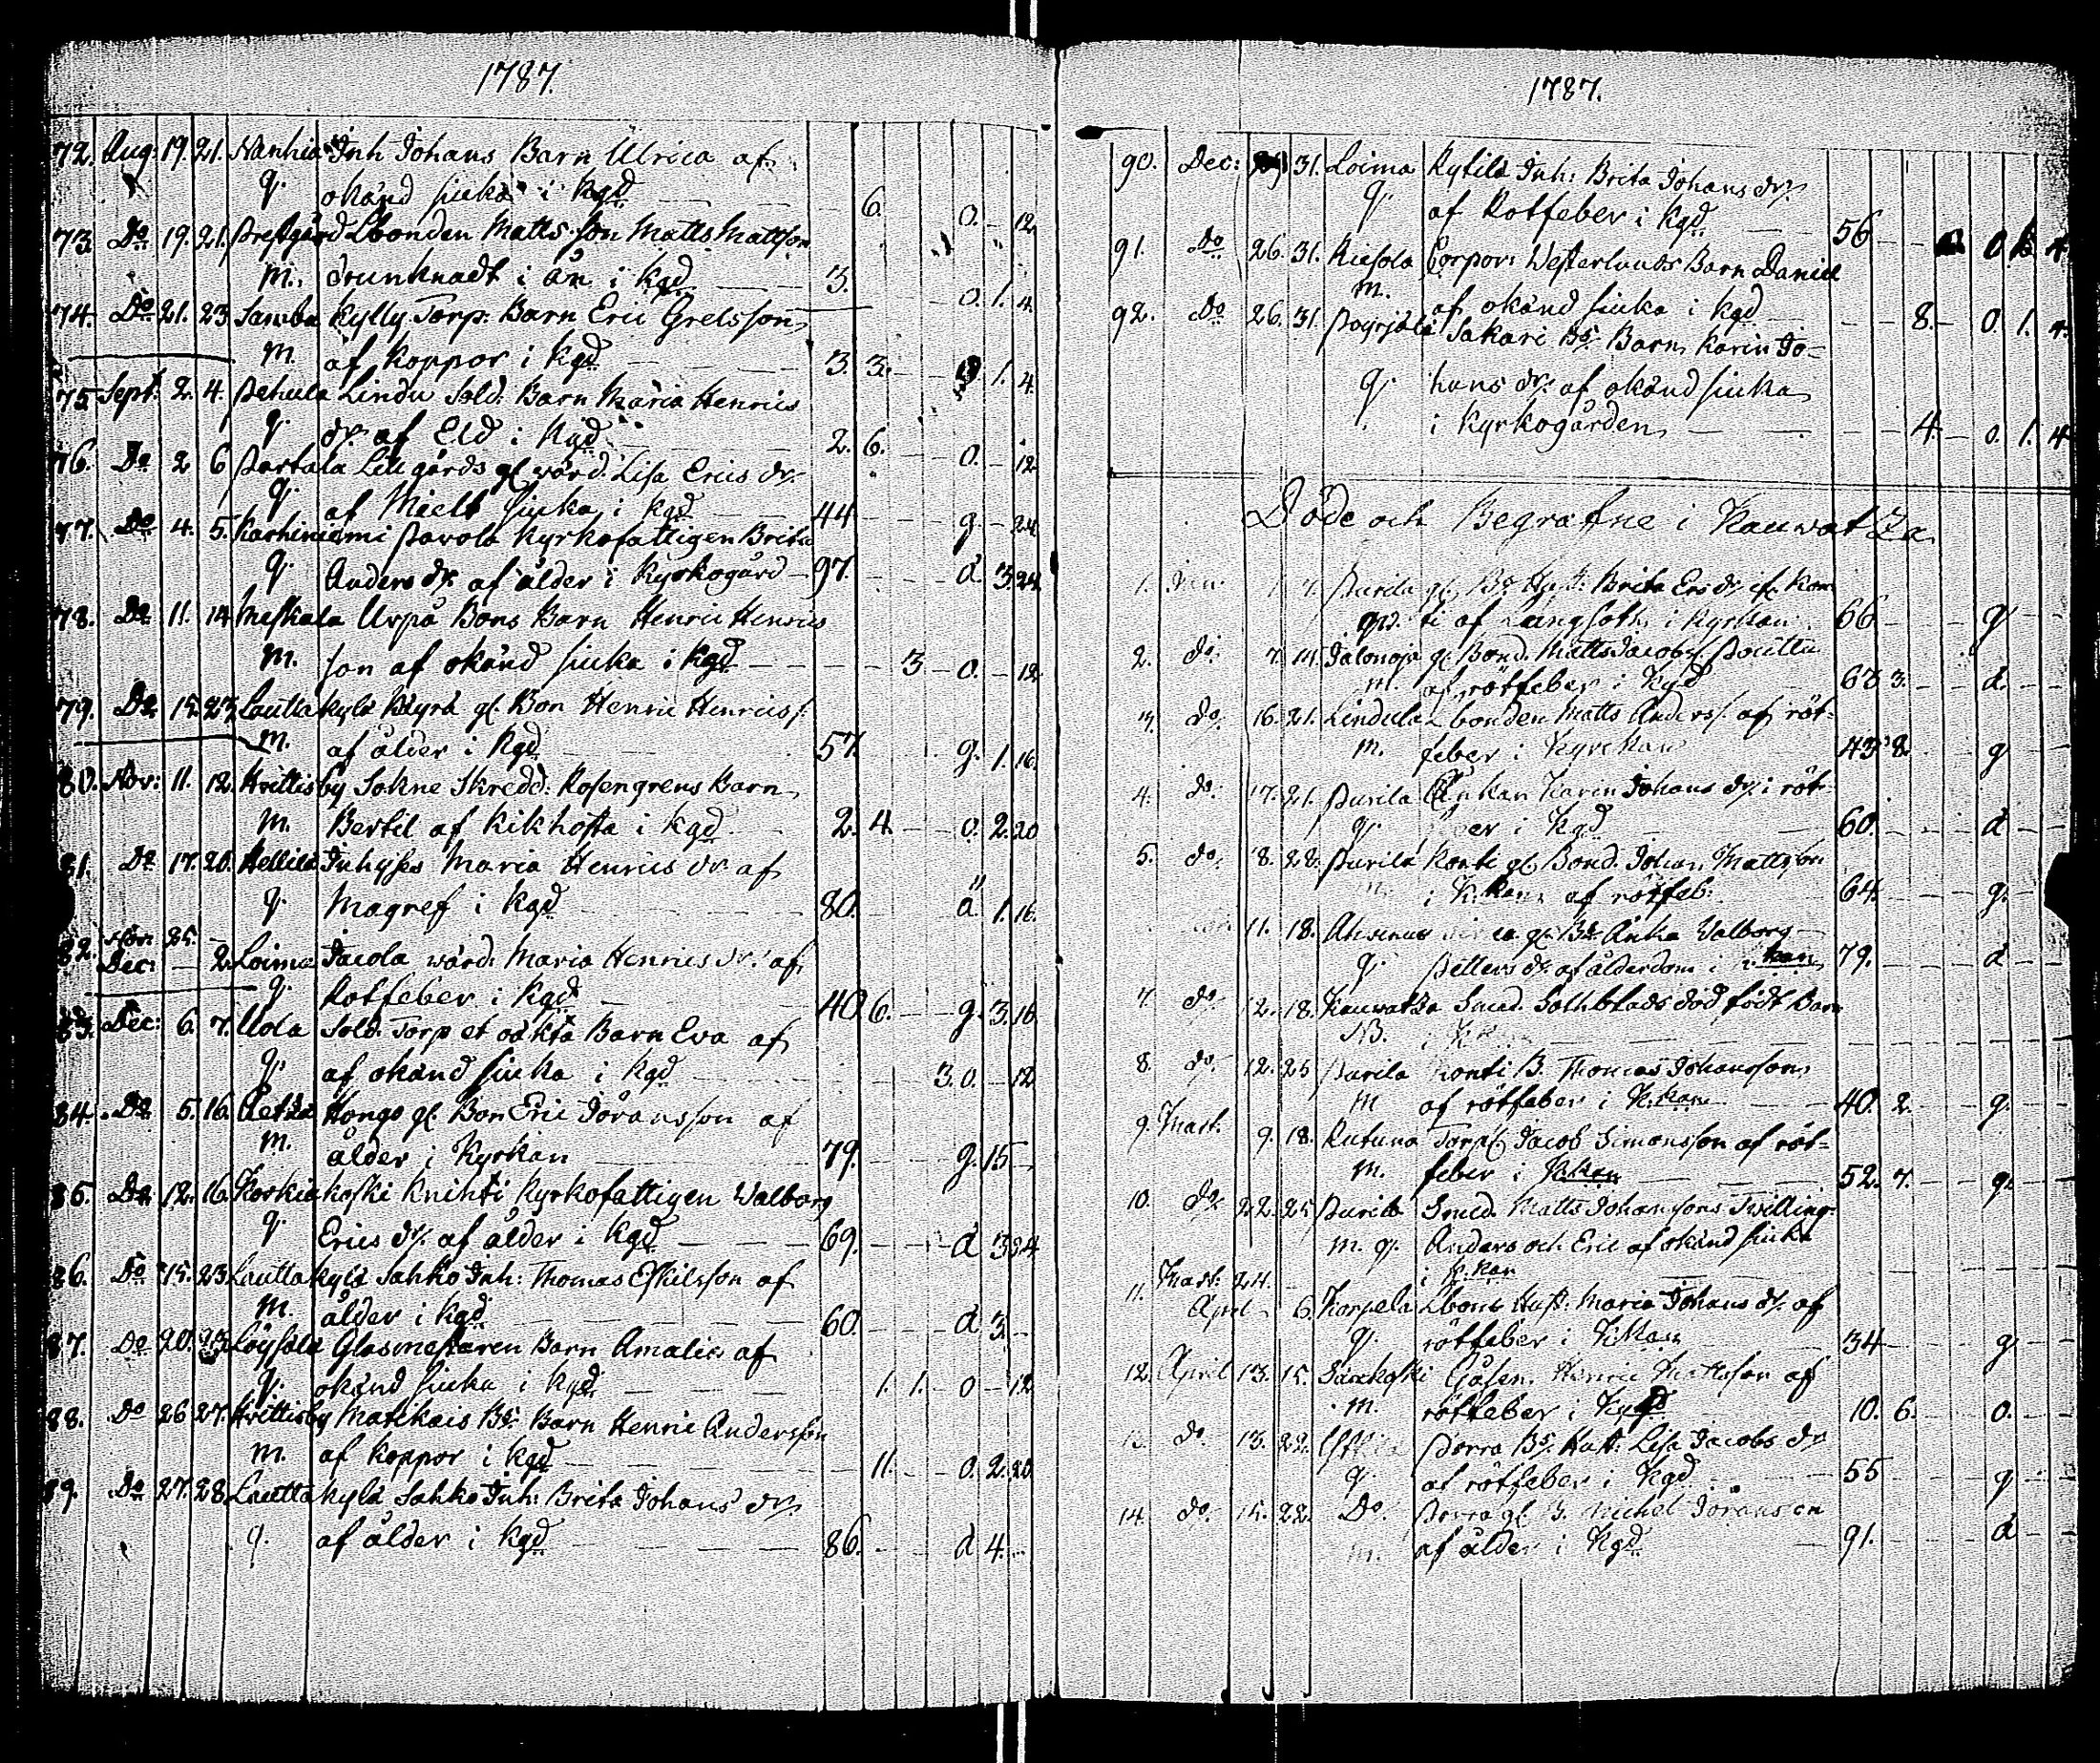 1787.
72. Aug: 19. 21. Nanhia Inh Johans Barn Ulrica af
q. okänd siuka i kgd 6. o. 12
73. Do 19. 21. Prestgård Lbonden Matts son Matts Mattson
m. drunknadt i ån i kgd 3. o. 1. 4.
74. Do 21. 23. Sambu Kylly Torp. Barn Eric Grelsson
m. af koppor i kgd 3. 3. 1. 4.
75 Sept: 2. 4. Pehula Lindu Sold. Barn Maria Henrics
q. dr. af Eld i kgd 2. 6. o. 12.
76. Do 2 6 Partala Lillgårds gl. wärd. Lisa Erics dr.
q. af Mielt siuka i kgd 44 g. 24
77. Do 4. 5. Karhiniemi Pavola Kyrkofattigen Brita
q. Anders dr. af ålder i Kyrkogård 97. d. 3 24
78. Do 11. 14 Meskala Uvpå Bons Barn Henric Henrics
m. son af okänd siuka i kgd 3 o. 12
79. Do 15. 23 Lauttakylä gl. Bon Henric Henricss.
m. af ålder i kgd 57. g. 1. 16.
80. Nov: 11. 12. Hvittisby Sokne Skredd: Rosengrens Barn
m. Bertil af kikhosta i kgd 2. 4. o. 2. 20
81. Do 17. 20. Hellilä Inhyses Maria Henrics dr. af
q. Magref i kgd 80. 1. 16.
82. Nov: 25.
Dec: 2 Loima Jacola wärd. Maria Henrics dr. af
q. Rotfeber i kgd 40 6. g. 3. 16
83. Dec: 6. 7. Uola Sold. Torp et oäkta Barn Eva af
q. af okänd siuka i kgd 3. o. 12
84. Do 5. 16. Hongo gl. Bon Eric Joransson af
m. ålder i Kyrkan 79. g. 15
85. Do 12. 16. Koskiakoski Knihti Kyrkofattigen Walborg
q. Erics dr. af ålder i kgd 69. d 3 24
86. Do 15. 23 Lauttakylä Sahko Inh: Thomas Eskilsson af
m. ålder i kgd 60. d 3.
87. Do 20. 23 Löysälä Glasmestaren Barn Amalia af
q. okänd siuka i kgd 1. 1. o 12
88. Do 26 27. Hvittisby Matikais Bs. Barn Henric Andersson
m. af koppor i kgd 11. o. 2. 20
89. Do 27. 28 Lauttakylä Sahko Inh: Brita Johans dr.
q. af ålder i kgd 86. d 4.
1787.
90. Dec: 31. Loima Kytilä Inh: Brita Johans dr.
q. af Rotfeber i kgd 56 o. 4
91. Do 26. 31. Riesola Corpor: Westerlunds Barn Daniel
m. af okänd siuka i kgd 8. o. 1. 4.
92. Do 26. 31. Sakari Bs. Barn Karin Jo-
q. hans dr. af okänd siuka
i Kyrkogården 4. o. 1. 4
Döde och Begrafne i Kauwatza
1. 7. Purila gl. Bo. Hust. Brita Ers dr. Kon
ti af Lungsoth i kyrkan. 66 g
2. do. 7. 14. Jalonoja gl. Bond. Matts Jacobs.
m. af rötfeber i kgd 68 3. d.
do. 16. 21. Lindula Lbonden Matts Anderss. af röt-
m. feber i Kyrckan 43 8. g
4. do. 17. 21. Purila Enkan Karin Johans dr. i röt-
q. i kgd 60. d
5. do. 8. 28. Purila Konti gl. Bond. Johan Mattsson
m. i K.kan af rötfeb: 64. g.
11. 18. gl. Bs. Änka Walborg
q. Petters dr. af ålderdom i K.kan 79. d
7. do. 12. 18. Kauwatza Smed. Sahlblads död födt Barn
NB.
8. do. 12. 25 Purila Konti B. Thomas Johansson
m af rötfeber i K.kan 40. 2. g.
9. Mart. 9. 18. Rutuna Torp. Jacob Simonsson af röt-
m. feber i K.kan 52. 7. g.
10. do. 22. 25 Purila Smed. Matts Johanssons Twilling
m. q. Anders och Eric af okänd siuka
i K.kan
11. Mart: 24.
April 6. Korpela Lbons Hust. Maria Johans dr. af
q. rötfeber i K.kan 34 g.
12. April 13. 15. Säxkoski Henric Mattsson af
m. rötfeber i Kgd 10. 6. o.
13. do. 13. 22. Porra Bs. Hust. Lisa Jacobs dr
q. af rötfeber i Kgd 55 g
14. do. 15. 22. Do. Porra gl. B. Michel Joransson
m. af ålder i Kgd 91. d